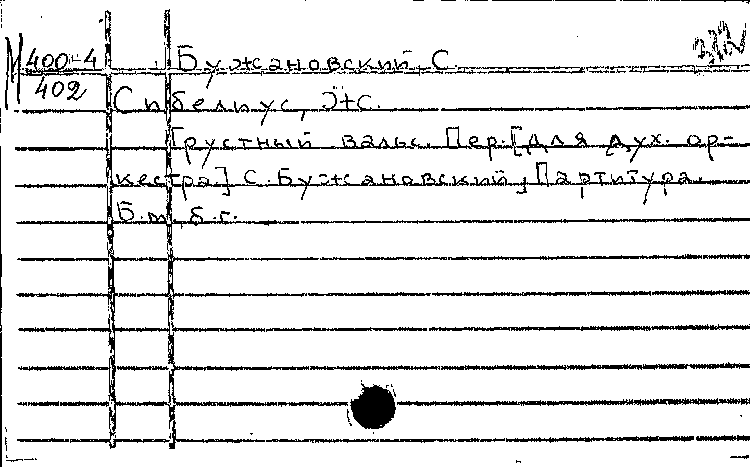 М 400-4 Бужановский, С. 312
402
Сибелиус, Ж.
Грустный вальс. Пер. [для дух. ор-
кестра] С. Бужановский, Партитура.
Б.м, б.г.